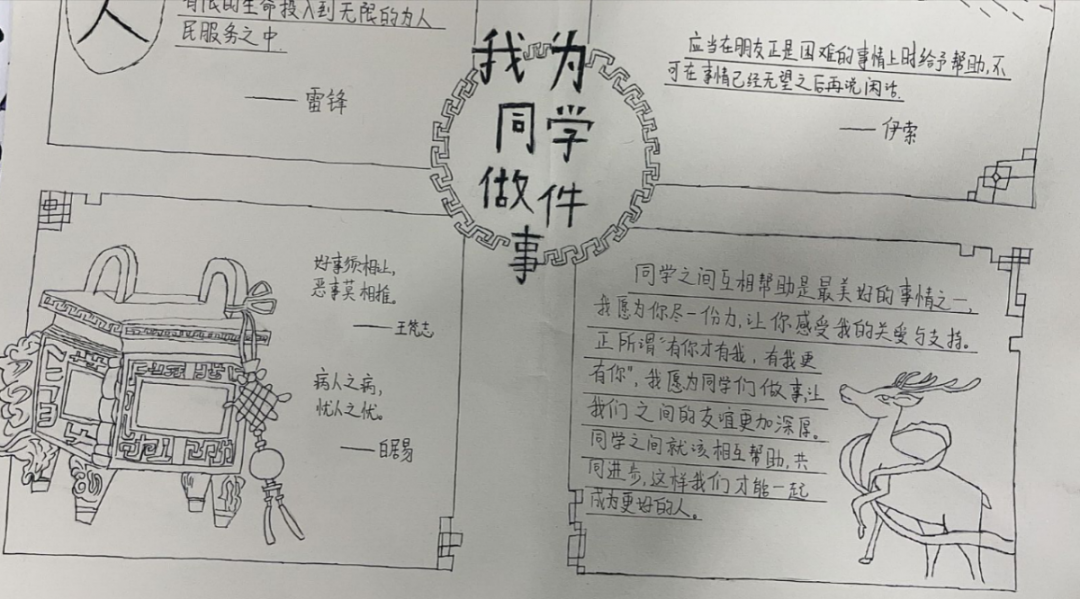 人
有限的生命投入到无限的为人
民服务之中
——雷锋
我为
同学
做件
事
应当在朋友正是困难的事情上时给予帮助,不
可在事情已经无望之后再说闲话.
——伊索
好事须相上,
恶事莫相推。
——王梵志
病人之病,
忧人之忧。
——白居易
同学之间互相帮助是最美好的事情之一,
我愿为你尽一份力,让你感受我的关爱与支持。
正所谓“有你才有我,有我更
有你”,我愿为同学们做事,让
我们之间的友谊更加深厚。
同学之间就该相互帮助,共
同进步,这样我们才能一起
成为更好的人。